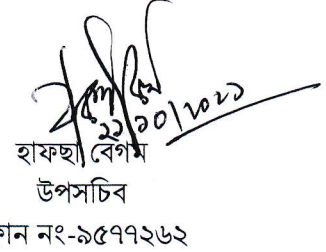 ২১/১০/২০২১
হাফছা বেগম
উপসচিব
ফোন নং-৯৫৭৭২৬২